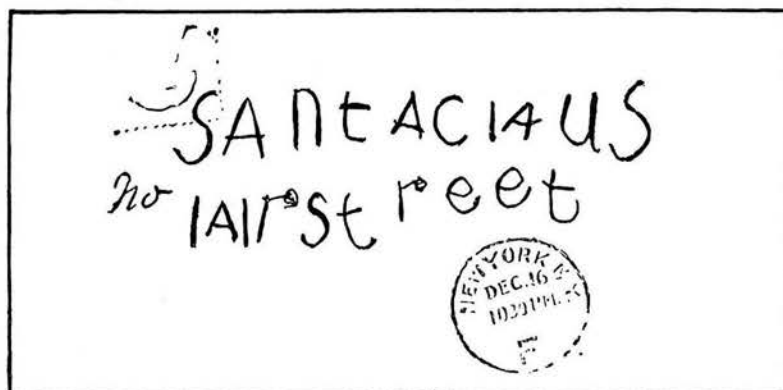 SANtAClAUS
no 1 AIr Street
NEW YORK N.Y.
DEC. 16
1030 PM.
F